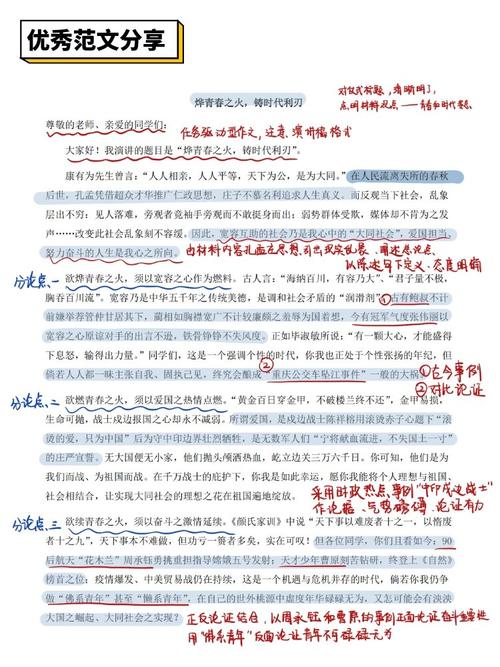 优秀范文分享
烨青春之火，铸时代利刃
对仗式标题，清晰明了，
点明材料观点——青春和时代意志
尊敬的老师、亲爱的同学们：
任务驱动型作文，注意演讲稿格式
大家好！我演讲的题目是“烨青春之火，铸时代利刃”。
康有为先生曾言：“人人相亲，人人平等，天下为公，是为大同。”在人民流离失所的春秋
后世，孔孟凭借超众才华推广仁政思想，庄子不慕名利追求人生真义。而反观当下社会，乱象
层出不穷：见人落难，旁观者竟袖手旁观而不敢挺身而出；弱势群体受欺，媒体却不肯为之发
声……改变此社会乱象刻不容缓。因此，宽容互助的社会乃是我心中的“大同社会”，爱国担当、
努力奋斗的人生是我心之所向。
由材料内容孔孟庄思想引出现实乱象，阐述总论点，
以陈述句下定义，态度明确
分论点、一
欲烨青春之火，须以宽容之心作为燃料。古人言：“海纳百川，有容乃大”、“君子量不极，
胸吞百川流”。宽容乃是中华五千年之传统美德，是调和社会矛盾的“润滑剂”。①古有鲍叔不计
前嫌举荐管仲甘居其下，蔺相如胸襟宽广不计较廉颇之羞辱为国着想，今有冠军气度张伟丽以
宽容之心原谅对手的出言不逊，铁骨铮铮不失风度。正如毕淑敏所说：“有一颗大心，才能盛得
下息怒，输得出力量。”同学们，这是一个强调个性的时代，你我也正处于个性张扬的年纪，但
倘若人人都一味主张自我、固执己见，终究会酿成“重庆公交车坠江事件”一般的大祸。
②
①古今事例
②对比论证
分论点、二
欲燃青春之火，须以爱国之热情点燃。“黄金百日穿金甲，不破楼兰终不还”，金甲易损，
生命可抛，战士戍边报国之心却永不减弱。所谓爱国，是戍边战士陈祥榕用滚烫赤子心题下“滚
烫的爱，只为中国”后为守中印边界壮烈牺牲，是无数军人们“宁将献血流进，不失国土一寸”
的庄严宣誓。无大国便无小家，他们抛头颅洒热血，屹立边关三万六千日。你可知，他们是为
我们而战、为祖国而战。在千万战士的庇护下，你我是如此幸运，愿你我能将个人理想与祖国、
社会相结合，让实现大同社会的理想之花在祖国遍地绽放。
采用时政热点事例“中印戍边战士”
作论据，气势磅礴，论证有力
分论点、三
欲续青春之火，须以奋斗之激情延续。《颜氏家训》中说“天下事以难废者十之一，以惰废
者十之九”，天下事本不难做，但因其懒惰而荒废，实在可叹！但各位同学，你们且看如今：90
后航天“花木兰”周承钰勇挑重担指导嫦娥五号发射；天才少年曹原刻苦钻研，终登上《自然》
榜首之位；疫情爆发、中美贸易战仍在持续，这是一个机遇与危机并存的年代，倘若你我仍争
做“佛系青年”甚至“懒系青年”，在自己的世外桃源中虚度年华碌碌无为，又怎可能会有泱泱
大国之崛起、大同社会之实现？
正反论证结合，以周承钰和曹原的事例正面论证奋斗重要性
用“佛系青年”反面论证青年不可碌碌无为